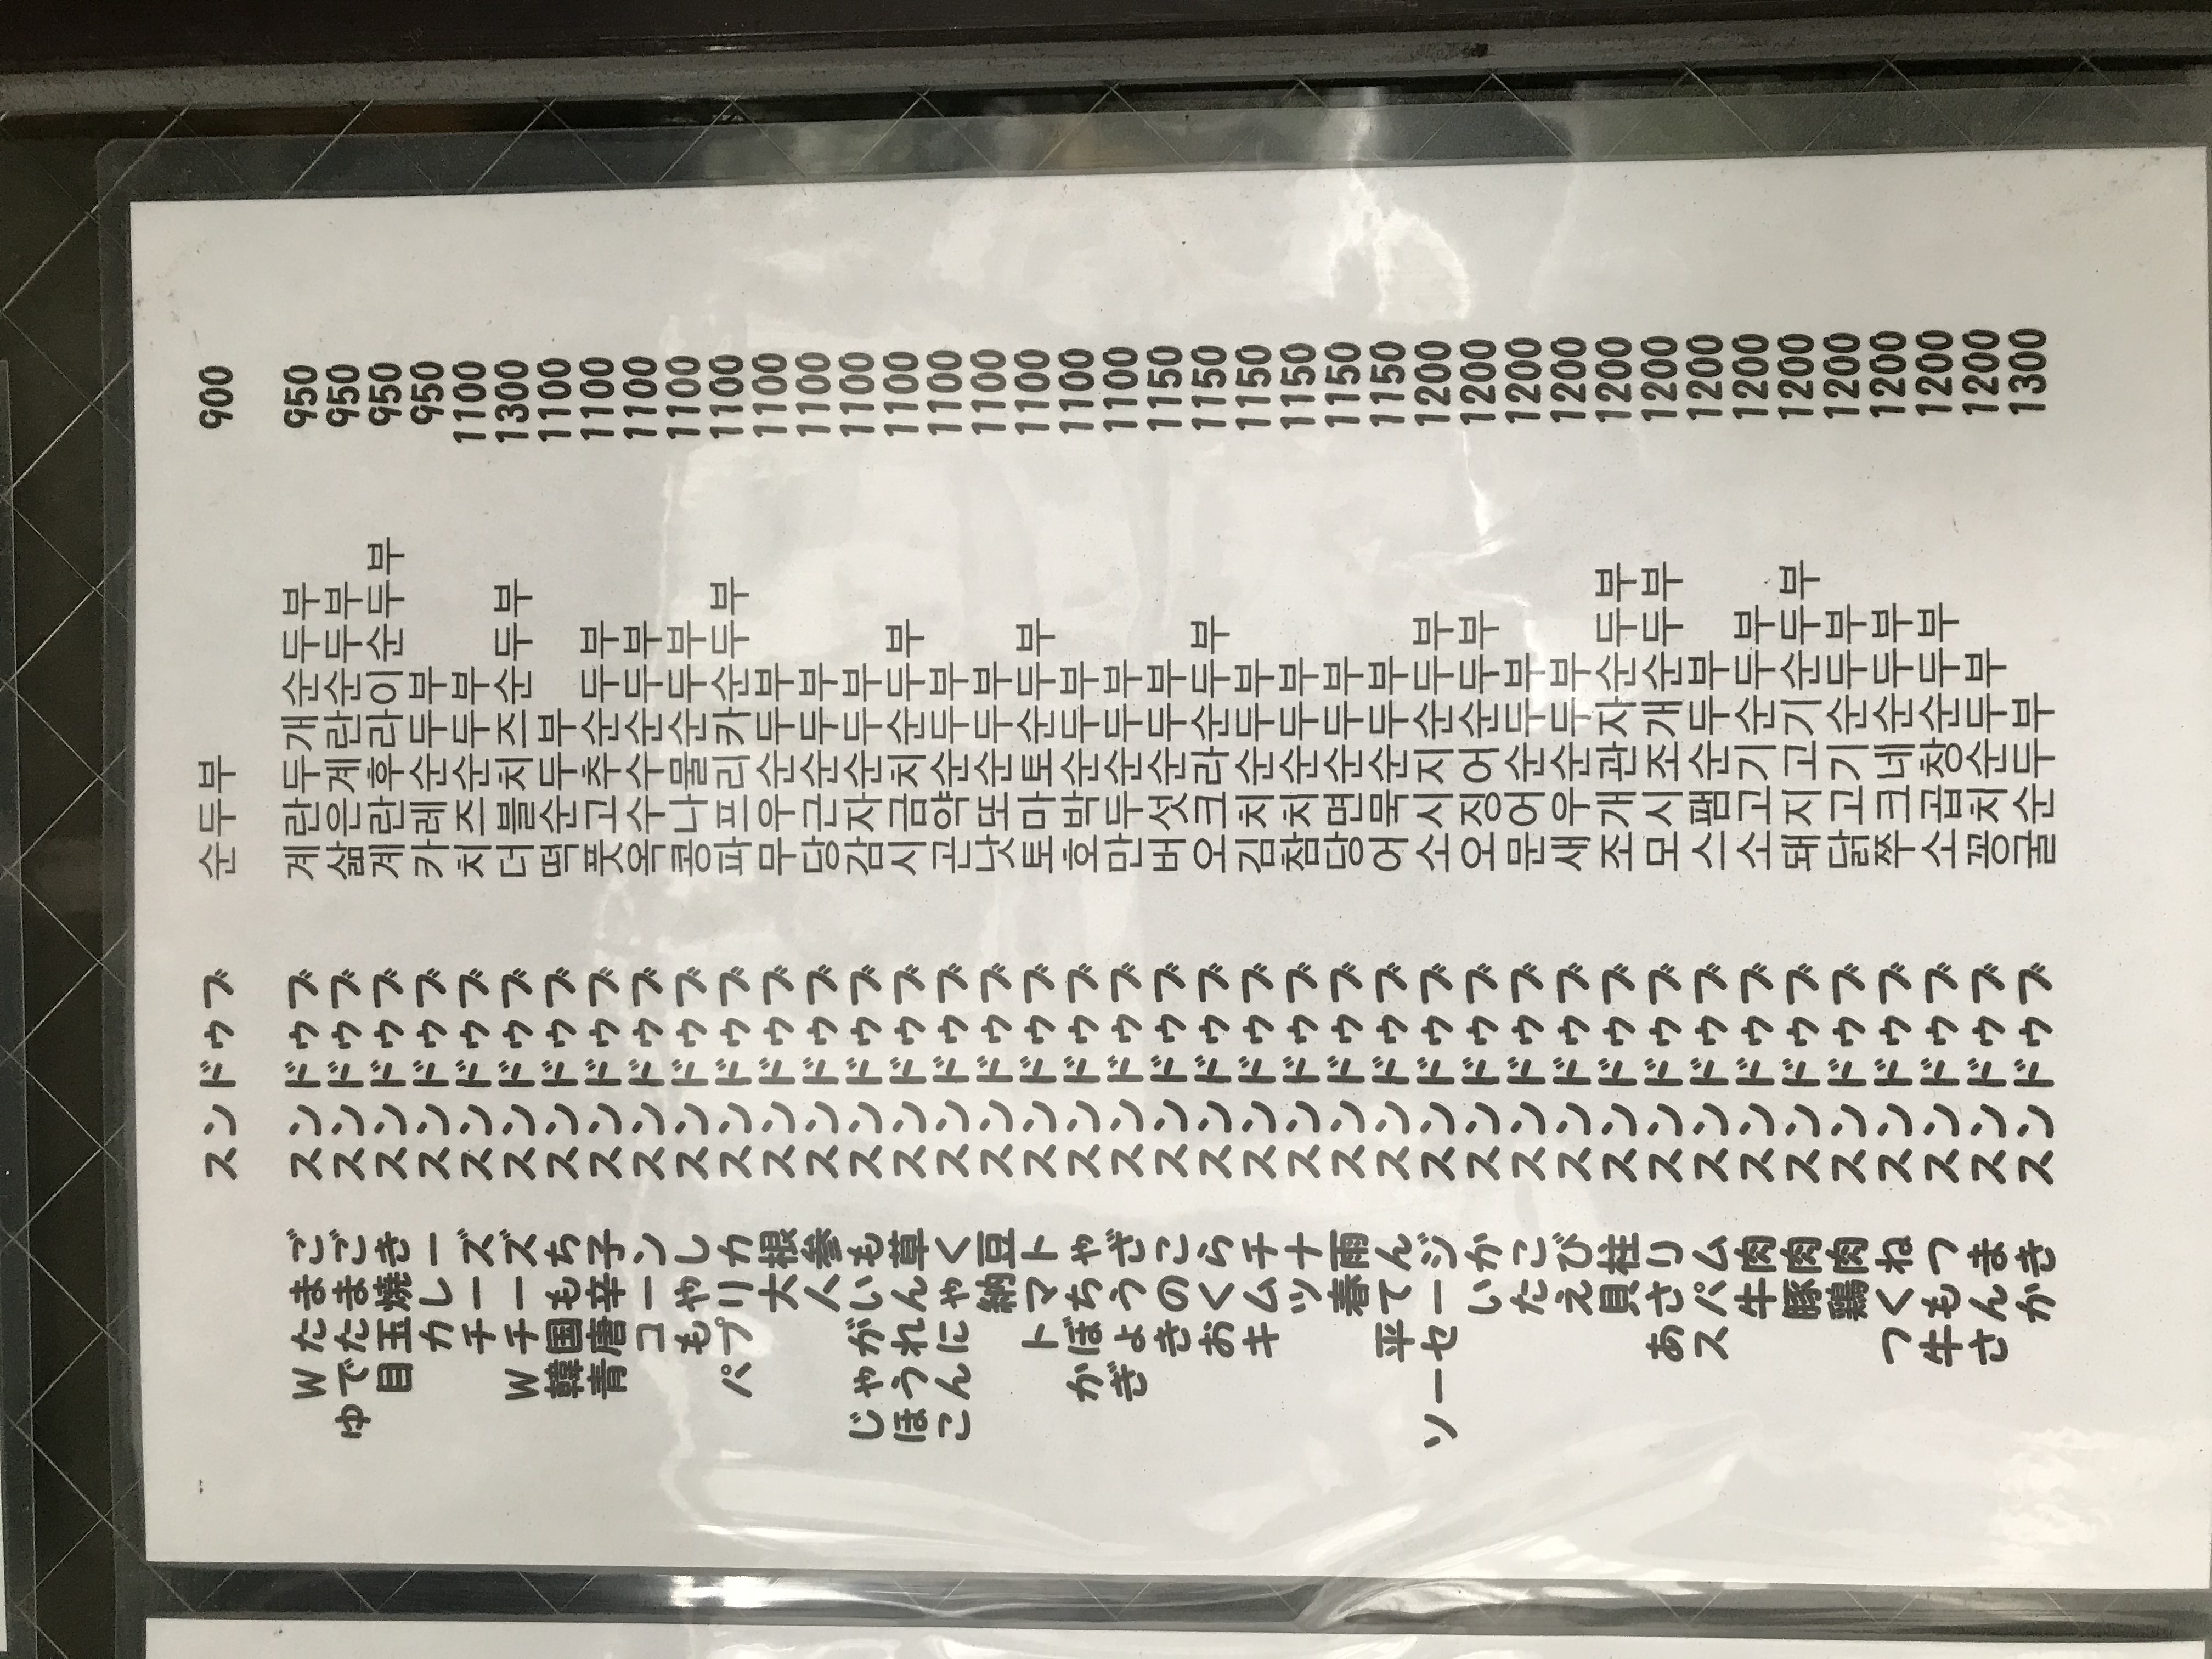 スンドゥブ 순두부 900
Wたまご スンドゥブ 계란두개순두부 950
ゆでたまご スンドゥブ 삶은계란순두부 950
目玉焼き スンドゥブ 계란후라이순두부 950
カレー スンドゥブ 카레순두부 950
チーズ スンドゥブ 치즈순두부 1100
Wチーズ スンドゥブ 더블치즈순두부 1300
韓国もち スンドゥブ 떡순두부 1100
青唐辛子 スンドゥブ 풋고추순두부 1100
コーン スンドゥブ 옥수수순두부 1100
もやし スンドゥブ 콩나물순두부 1100
パプリカ スンドゥブ 파프리카순두부 1100
大根 スンドゥブ 무우순두부 1100
人参 スンドゥブ 당근순두부 1100
じゃがいも スンドゥブ 감자순두부 1100
ほうれん草 スンドゥブ 시금치순두부 1100
こんにゃく スンドゥブ 곤약순두부 1100
納豆 スンドゥブ 낫또순두부 1100
トマト スンドゥブ 토마토순두부 1100
かぼちゃ スンドゥブ 호박순두부 1100
ぎょうざ スンドゥブ 만두순두부 1100
きのこ スンドゥブ 버섯순두부 1150
おくら スンドゥブ 오크라순두부 1150
キムチ スンドゥブ 김치순두부 1150
ツナ スンドゥブ 참치순두부 1150
春雨 スンドゥブ 당면순두부 1150
平てん スンドゥブ 어묵순두부 1150
ソーセージ スンドゥブ 소시지순두부 1200
いか スンドゥブ 오징어순두부 1200
たこ スンドゥブ 문어순두부 1200
えび スンドゥブ 새우순두부 1200
貝柱 スンドゥブ 조개관자순두부 1200
あさり スンドゥブ 모시조개순두부 1200
スパム スンドゥブ 스팸순두부 1200
牛肉 スンドゥブ 소고기순두부 1200
豚肉 スンドゥブ 돼지고기순두부 1200
鶏肉 スンドゥブ 닭고기순두부 1200
つくね スンドゥブ 쭈크네순두부 1200
牛もつ スンドゥブ 소곱창순두부 1200
さんま スンドゥブ 꽁치순두부 1200
かき スンドゥブ 굴순두부 1300